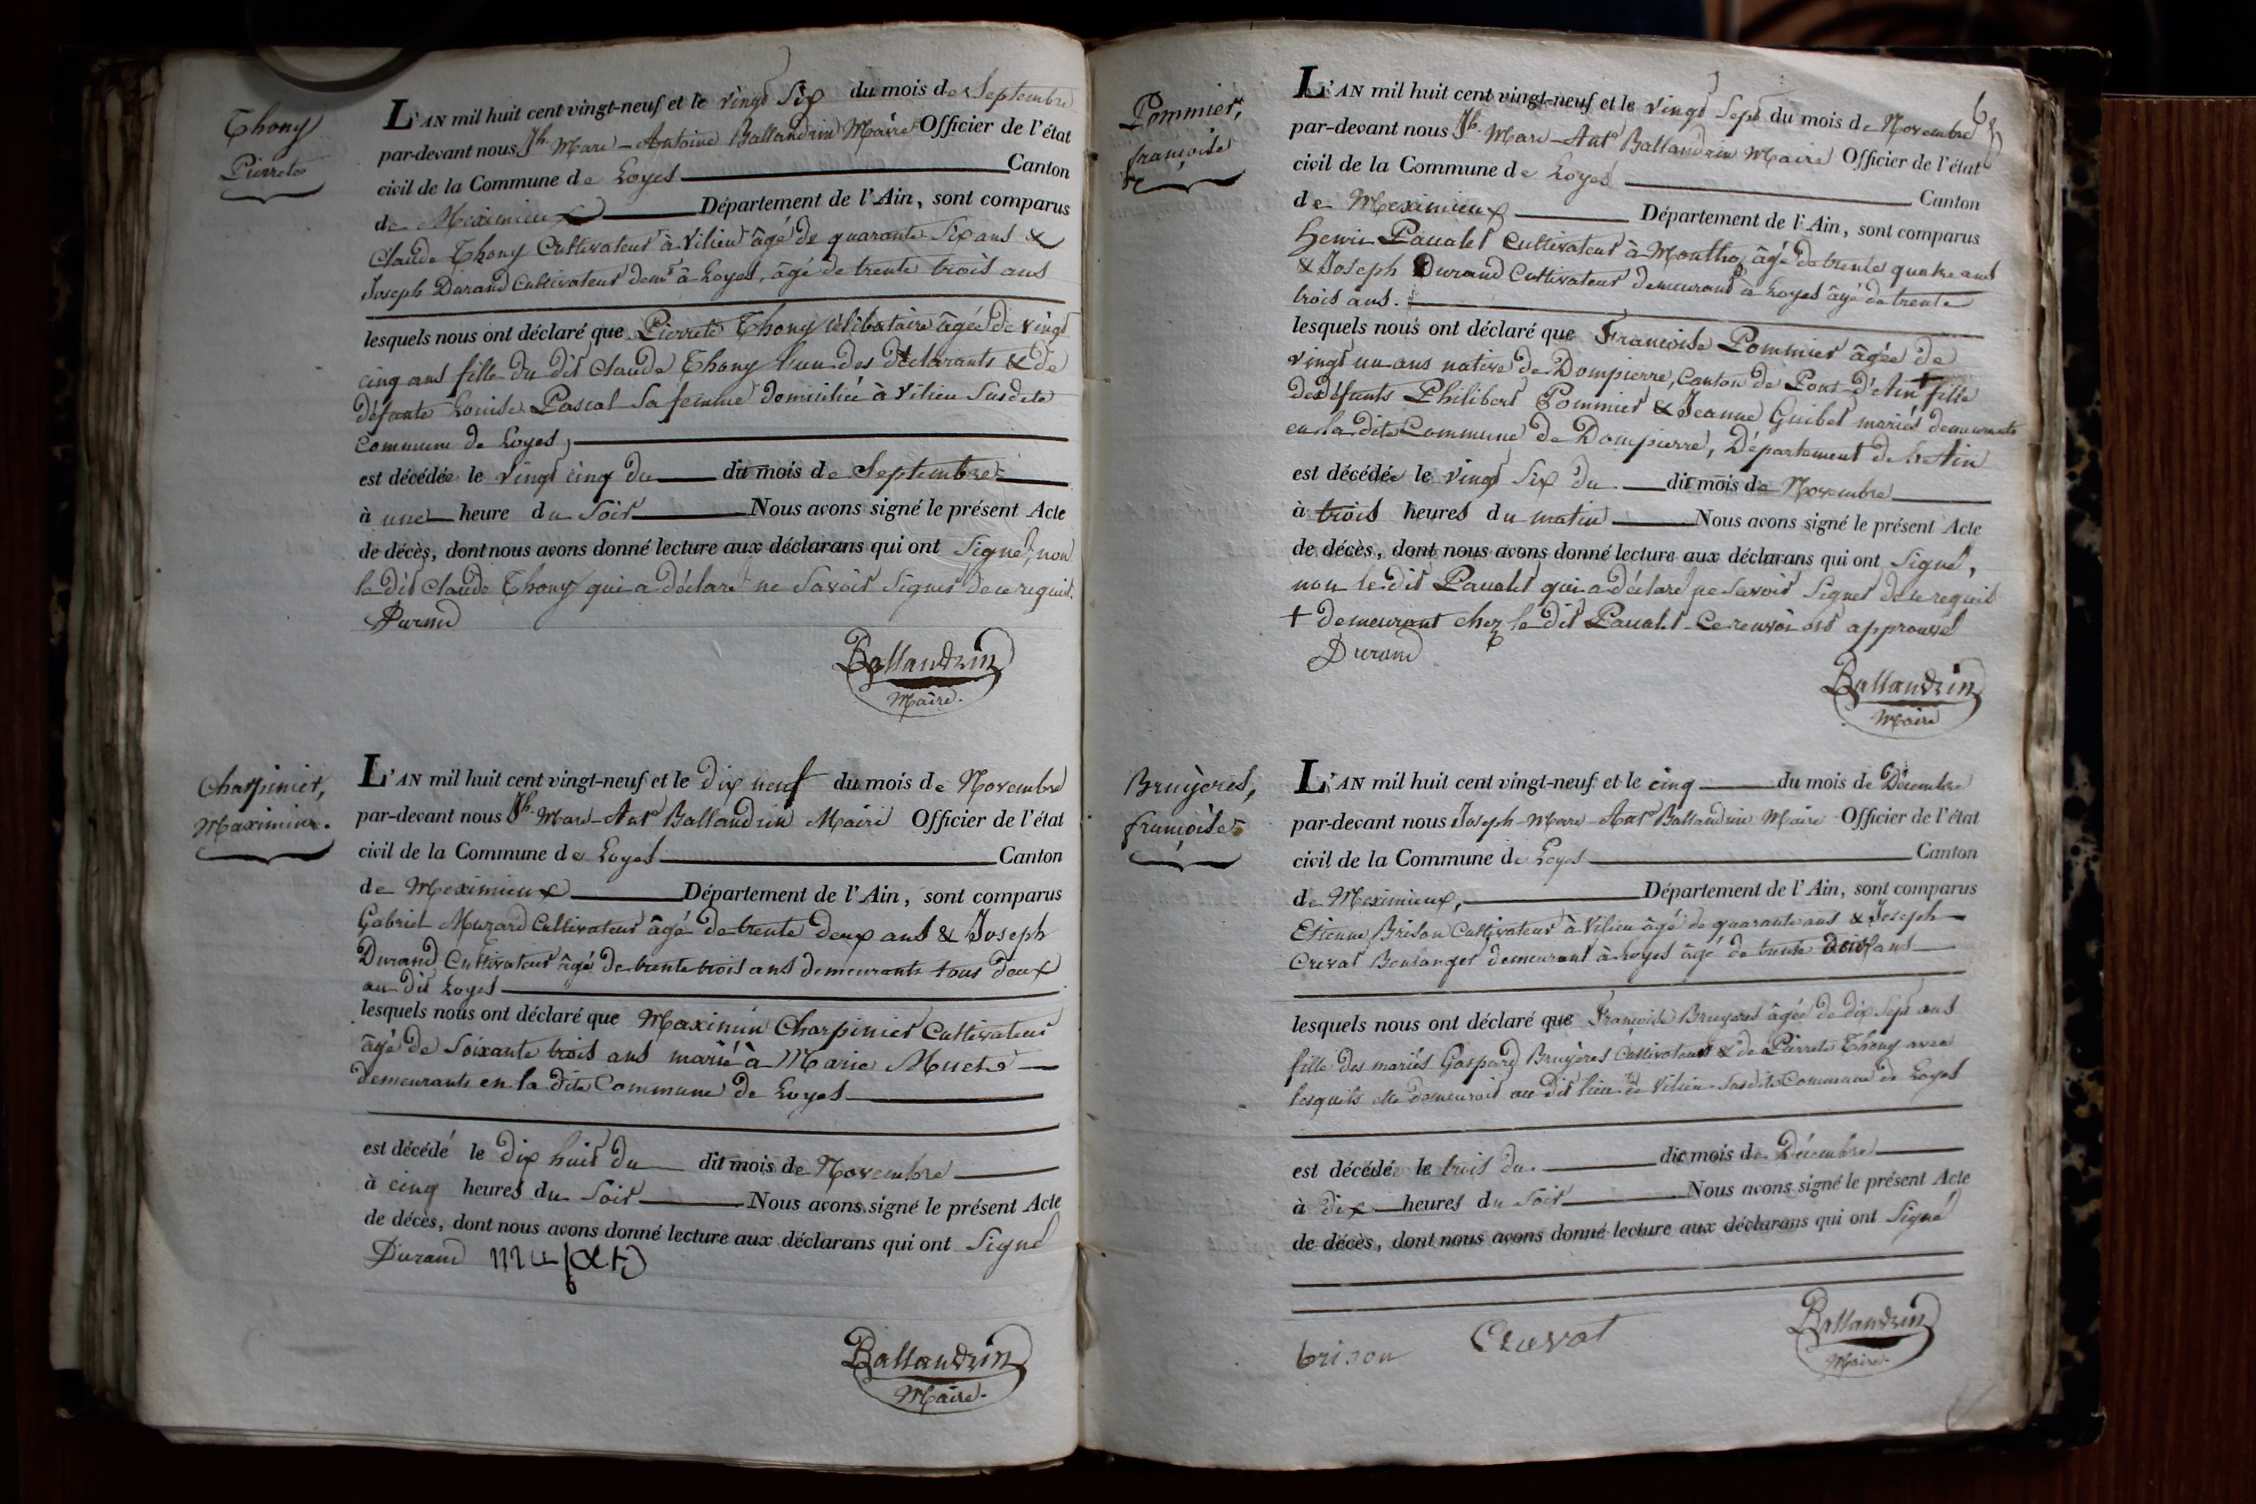 Thony
Pierrete
L'AN mil huit cent vingt-neuf et le vingt six du mois de Septembre
par-devant nous Jh. Marc-Antoine Ballandrin Maire Officier de l'état
civil de la Commune de Loyes Canton
de Meximieux Département de l'Ain, sont comparus
Claude Thony Cultivateur à Vilieu âgé de quarante Six ans &
Joseph Durand Cultivateur demt à Loyes, âgé de trente trois ans
lesquels nous ont déclaré que Pierrete Thony célibataire âgée de vingt
cinq ans fille du dit Claude Thony l'un des déclarants & de
défunte Louise Pascal sa femme domiciliée à Vilieu Susdite
Commune de Loyes,
est décédée le vingt cinq du dit mois de Septembre
à une heure du Soir Nous avons signé le présent Acte
de décès, dont nous avons donné lecture aux déclarans qui ont Signé, non
le dit Claude Thony qui a déclaré ne Savoir Signer de ce requis.
Durand
Ballandrin
Maire.
Charpinier,
Maximin.
L'AN mil huit cent vingt-neuf et le dix neuf du mois de Novembre
par-devant nous Jh. Marc-Ant Ballandrin Maire Officier de l'état
civil de la Commune de Loyes Canton
de Meximieux Département de l'Ain, sont comparus
Gabriel Muzard Cultivateur âgé de trente deux ans & Joseph
Durand Cultivateur âgé de trente trois ans demeurants tous deux
au dit Loyes
lesquels nous ont déclaré que Maximin Charpinier Cultivateur
âgé de Soixante trois ans marié à Marie Muet
demeurants en la dite Commune de Loyes
est décédé le dix huit du dit mois de Novembre
à cinq heures du Soir Nous avons signé le présent Acte
de décès, dont nous avons donné lecture aux déclarans qui ont Signé
Durand
Ballandrin
Maire.
Pommier,
françoise
L'AN mil huit cent vingt-neuf et le vingt Sept du mois de Novembre
par-devant nous Jh. Marc-Ant Ballandrin Maire Officier de l'état
civil de la Commune de Loyes Canton
de Meximieux Département de l'Ain, sont comparus
Henri Paualet Cultivateur à Montho âgé de trente quatre ans
& Joseph Durand Cultivateur demeurant à Loyes âgé de trente
trois ans.
lesquels nous ont déclaré que Francoise Pommier âgée de
vingt un ans native de Dompierre, Canton de Pont d'Ain + fille
des défunts Philibert Pommier & Jeanne Guibet mariés demeurants
en la dite Commune de Dompierre, Département de l'Ain
est décédée le vingt Six du dit mois de Novembre
à trois heures du matin Nous avons signé le présent Acte
de décès, dont nous avons donné lecture aux déclarans qui ont Signé,
non le dit Paualet qui a déclaré ne Savoir Signer de ce requis
+ demeurant chez le dit Paualet Ce renvoi est approuvé
Durand
Ballandrin
Maire
Bruyeres,
françoise
L'AN mil huit cent vingt-neuf et le cinq du mois de Décembre
par-devant nous Joseph-Marc-Ant Ballandrin Maire Officier de l'état
civil de la Commune de Loyes Canton
de Meximieux, Département de l'Ain, sont comparus
Etienne Brison Cultivateur à Vilieu âgé de quarante ans & Joseph
Cruvat Boulanger demeurant à Loyes âgé de trente ans
lesquels nous ont déclaré que Françoise Bruyeres âgée de dix Sept ans
fille des mariés Gaspard Bruyères Cultivateur & de Pierrete Thony avec
lesquels elle demeurait au dit lieu de Vilieu Susdite Commune de Loyes
est décédée le trois du dit mois de Décembre
à dix heures du Soir Nous avons signé le présent Acte
de décès, dont nous avons donné lecture aux déclarans qui ont Signé
brison Cruvat
Ballandrin
Maire.